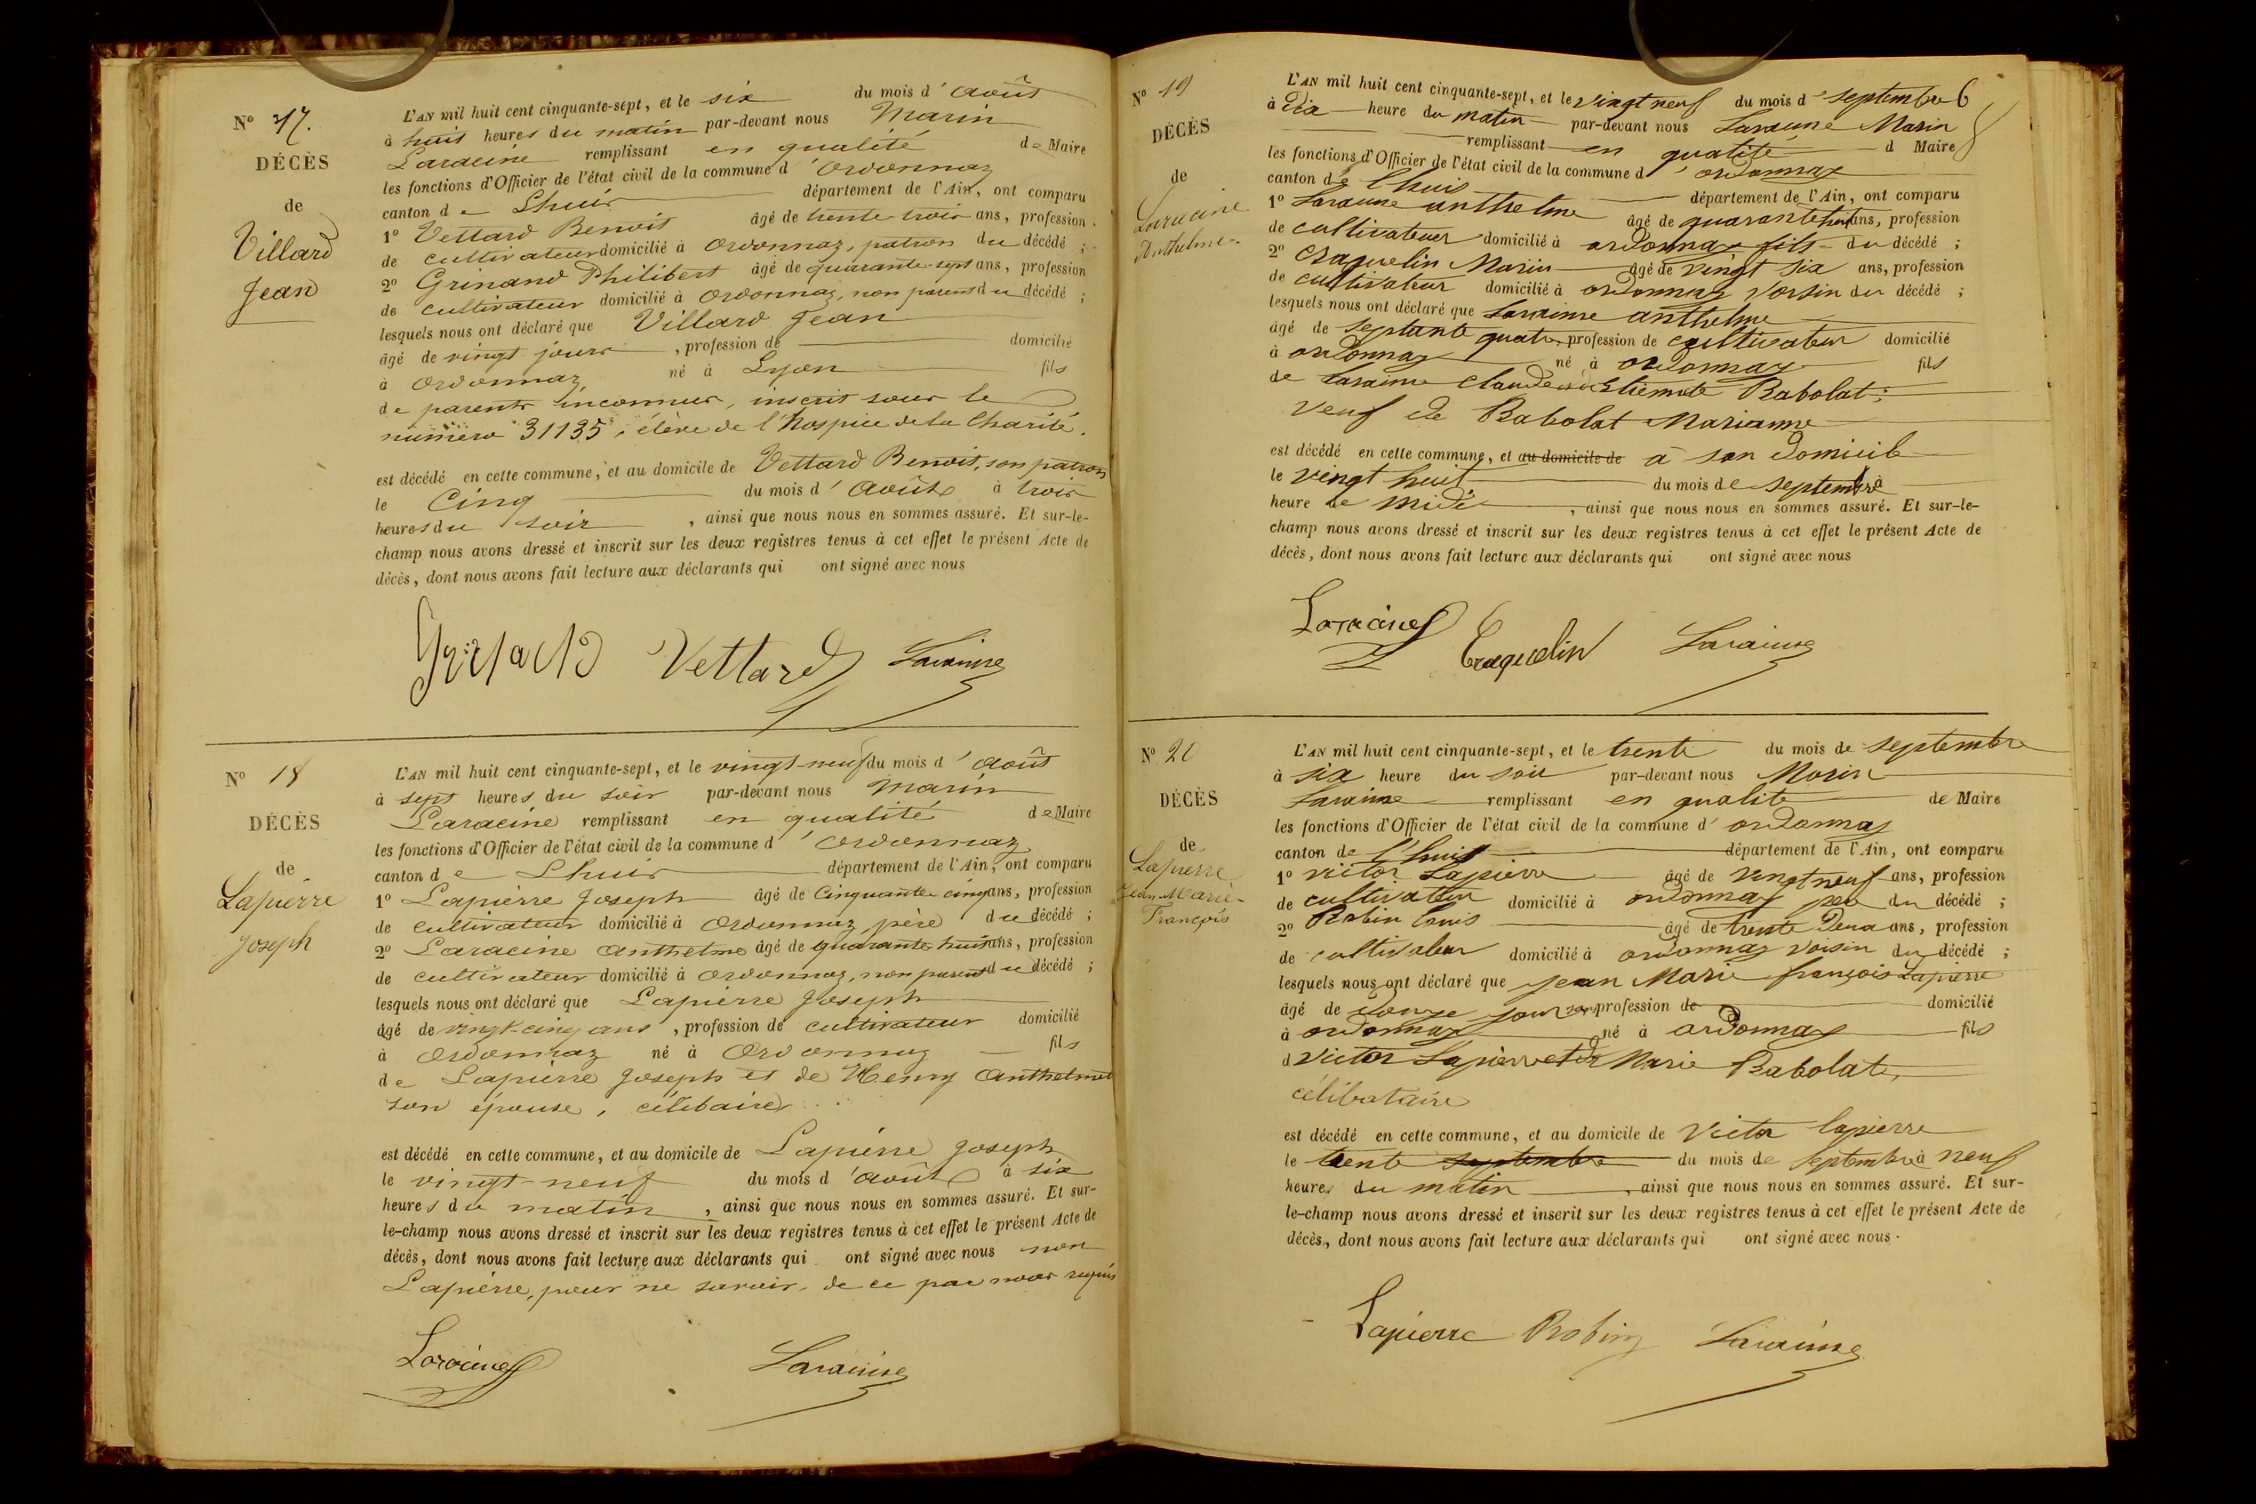 N° 17.
DÉCÈS
de
Villard
Jean
L'AN mil huit cent cinquante-sept, et le six du mois d'Août
à huit heures du matin par-devant nous Marin
Laracine remplissant en qualité de Maire
les fonctions d'Officier de l'état civil de la commune d'Ordonnaz
canton de Lhuis département de l'Ain, ont comparu
1° Vettard Benoit âgé de trente trois ans, profession
de cultivateur domicilié à Ordonnaz, patron du décédé ;
2° Grinand Philibert âgé de quarante-sept ans, profession
de cultivateur domicilié à Ordonnaz, non parent du décédé ;
lesquels nous ont déclaré que Villard Jean
âgé de vingt jours, profession de domicilié
à Ordonnaz né à Lyon fils
de parents inconnus, inscrit sous le
numéro 31135, élève de l'hospice de la Charité.
est décédé en cette commune, et au domicile de Vettard Benoit, son patron
le Cinq du mois d'Août à trois
heures du soir, ainsi que nous nous en sommes assuré. Et sur-le-
champ nous avons dressé et inscrit sur les deux registres tenus à cet effet le présent Acte de
décès, dont nous avons fait lecture aux déclarants qui ont signé avec nous
Vettard Laracine
N° 18
DÉCÈS
de
Lapierre
Joseph
L'AN mil huit cent cinquante-sept, et le vingt-neuf du mois d'Août
à sept heures du soir par-devant nous Marin
Laracine remplissant en qualité de Maire
les fonctions d'Officier de l'état civil de la commune d'Ordonnaz
canton de Lhuis département de l'Ain, ont comparu
1° Lapierre Joseph âgé de Cinquante cinq ans, profession
de cultivateur domicilié à Ordonnaz père du décédé ;
2° Laracine Anthelme âgé de quarante-huit ans, profession
de cultivateur domicilié à Ordonnaz, non parent du décédé ;
lesquels nous ont déclaré que Lapierre Joseph
âgé de vingt-cinq ans, profession de cultivateur domicilié
à Ordonnaz né à Ordonnaz fils
de Lapierre Joseph et de Henry Anthelmette
son épouse, célibaire
est décédé en cette commune, et au domicile de Lapierre Joseph
le vingt-neuf du mois d'Août à six
heures du matin, ainsi que nous nous en sommes assuré. Et sur-
le-champ nous avons dressé et inscrit sur les deux registres tenus à cet effet le présent Acte de
décès, dont nous avons fait lecture aux déclarants qui ont signé avec nous non
Lapierre, pour ne savoir, de ce par nous requis
Laracine Laracine
N° 19
DÉCÈS
de
Laracine
Anthelme
L'AN mil huit cent cinquante-sept, et le vingt neuf du mois de septembre 6
à dix heure du matin par-devant nous Laracine Marin
remplissant en qualité d Maire
les fonctions d'Officier de l'état civil de la commune d'ordonnaz
canton de lhuis département de l'Ain, ont comparu
1° Laracine anthelme âgé de quarante huit ans, profession
de cultivateur domicilié à ordonnaz fils du décédé ;
2° Craquelin Marin âgé de vingt six ans, profession
de cultivateur domicilié à ordonnaz voisin du décédé ;
lesquels nous ont déclaré que Laracine anthelme
âgé de septante quatre, profession de cultivateur domicilié
à ordonnaz né à ordonnaz fils
de Laracine Claude et de Etiennete Babolat ;
veuf de Babolat Marianne
est décédé en cette commune, et au domicile de à son domicile
le vingt huit du mois de septembre à
heure de midi, ainsi que nous nous en sommes assuré. Et sur-le-
champ nous avons dressé et inscrit sur les deux registres tenus à cet effet le présent Acte de
décès, dont nous avons fait lecture aux déclarants qui ont signé avec nous
Laracine Craquelin Laracine
N° 20
DÉCÈS
de
Lapierre
Jean-Marie-
François
L'AN mil huit cent cinquante-sept, et le trente du mois de septembre
à six heure du soir par-devant nous Marin
Laracine remplissant en qualité de Maire
les fonctions d'Officier de l'état civil de la commune d'ordonnaz
canton de l'huis département de l'Ain, ont comparu
1° Victor Lapierre âgé de vingt neuf ans, profession
de cultivateur domicilié à ordonnaz père du décédé ;
2° Robin Louis âgé de trente deux ans, profession
de cultivateur domicilié à ordonnaz voisin du décédé ;
lesquels nous ont déclaré que jean Marie françois Lapierre
âgé de jours profession de domicilié
à ordonnaz né à ordonnaz fils
d Victor Lapierre et de Marie Babolat,
célibataire
est décédé en cette commune, et au domicile de Victor lapierre
le trente septembre du mois de septembre à neuf
heures du matin, ainsi que nous nous en sommes assuré. Et sur-
le-champ nous avons dressé et inscrit sur les deux registres tenus à cet effet le présent Acte de
décès, dont nous avons fait lecture aux déclarants qui ont signé avec nous.
Lapierre Robin Laracine